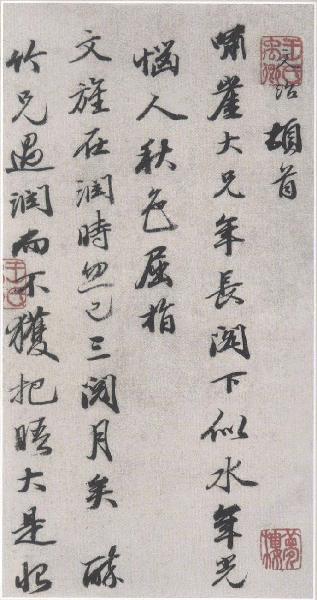 文治頓首
嘯崖大兄年長閣下似水年光
惱人秋色屈指
文旌在潤時忽已三閱月矣
竹兄過潤而不獲把晤大是
王氏禹卿
夢樓